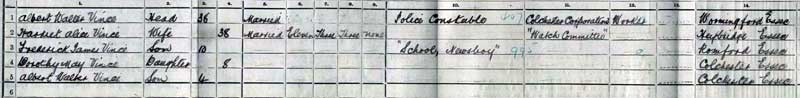 1. 2. 3. 4. 5. 6. 7. 8. 9. 10. 11. 12. 13. 14.
1 Albert Walter Vince Head 36 Married Police Constable Colchester Corporation Worker Wormingford Essex
2 Harriet Alice Vince Wife 38 Married Eleven Three Three None "Watch Committee" Heybridge Essex
3 Frederick James Vince Son 10 "School, Newsboy" Romford Essex
4 Dorothy May Vince Daughter 8 Colchester Essex
5 Albert Walter Vince Son 4 Colchester Essex
6